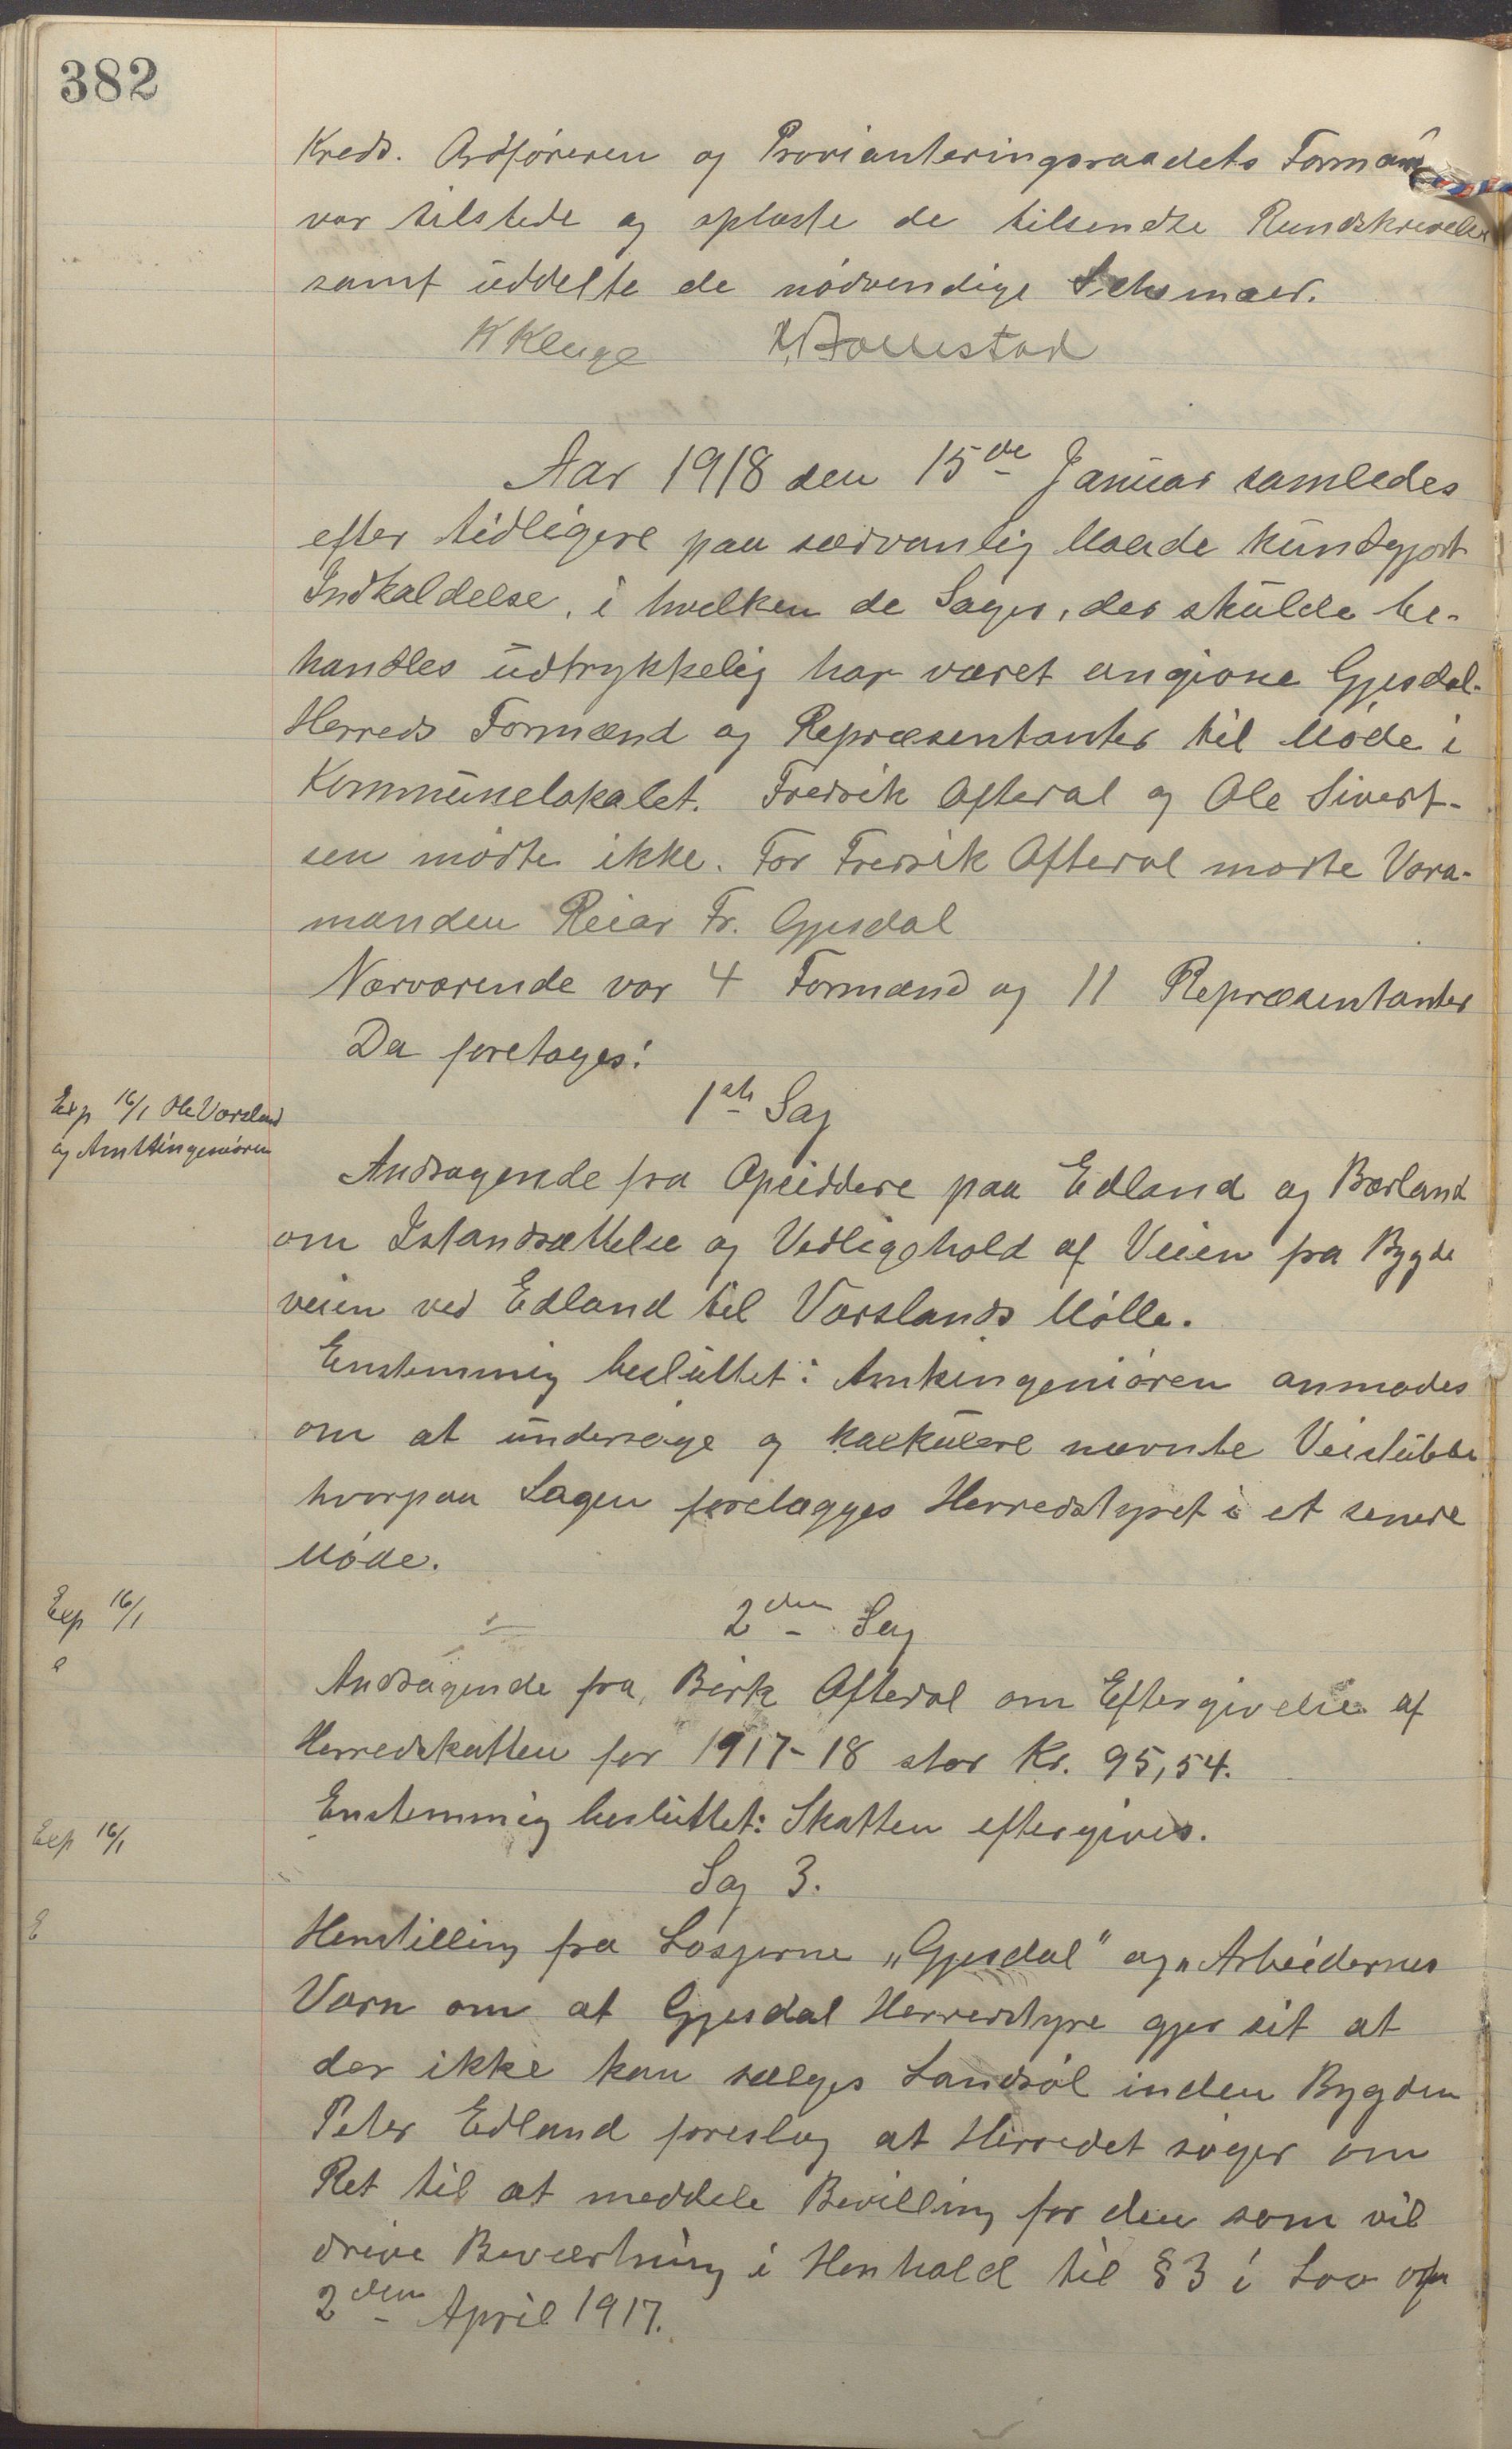 382
Kreds. Ordføreren og Provianteringsraadets Formand
var tilstede og oplæste de tilsendte Rundskrivelser
samt uddelte de nødvendige Schemaer.
K Kluge
Aar 1918 den 15de Januar samledes
efter tidligere paa sædvanlig Maade kundgjort
Indkaldelse, i hvilken de Sager, der skulde be-
handles udtrykkelig har været angivne Gjesdal
Herreds Formænd og Repræsentanter til Møde i
Kommunelokalet. Fredrik Ofteral og Ole Sivert-
sen mødte ikke. For Fredrik Ofteral mødte Vara-
manden Reiar Fr. Gjesdal
Nærværende var 4 Formænd og 11 Repræsentanter
Da foretoges:
1ste Sag
Exp 16/1 Ole Værsland
og Amtsingeniøren
Andragende fra Opsiddere paa Edland og Bærland
om Istandsættelse og Vedligehold af Veien fra Bygde
veien ved Edland til Værslands Mølle.
Enstemmig besluttet: Amtsingeniøren anmodes
om at undersøge og kalkulere nævnte Veistubbe
hvorpaa Sagen forelægges Herredstyret i et senere
Møde.
Exp 16/1
2den Sag
Andragende fra Birk Ofteral om Eftergivelse af
Herredskatten for 1917-18 stor Kr. 95,54.
Enstemmig besluttet: Skatten eftergives.
Exp 16/1
Sag 3.
E
Henstilling fra Losjerne "Gjesdal" og "Arbeidernes
Værn om at Gjesdal Herredstyre gjør sit at
der ikke kan sælges Landsøl inden Bygden
Peter Edland foreslog at Herredet søger om
Ret til at meddele Bevilling for den som vil
drive Beværtning i Henhold til § 3 i Lov af
2den April 1917.